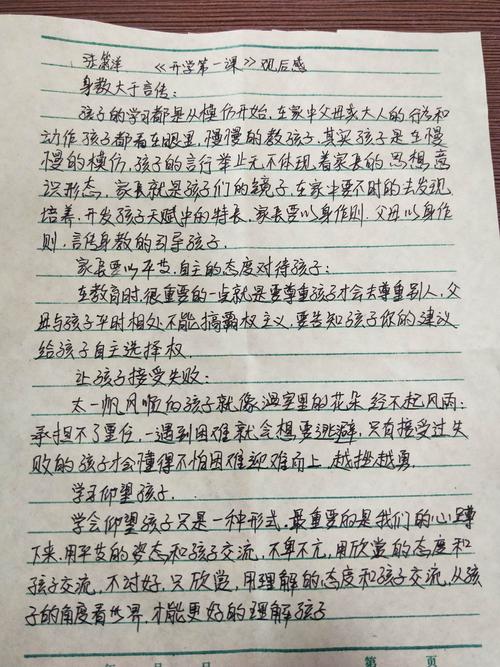 张箫洋 《开学第一课》观后感
身教大于言传：
孩子的学习都是从模仿开始，在家中父母亲大人的行为和
动作，孩子都看在眼里，慢慢的教孩子，其实孩子是在慢
慢的模仿，孩子的言行举止无不体现着家长的思想，意
识形态，家长就是孩子们的镜子，在家中要不时的去发现
培养，开发孩子天赋中的特长，家长要以身作则，父母以身作
则，言传身教的引导孩子。
家长要以平等、自主的态度对待孩子：
在教育时，很重要的一点就是要尊重孩子才会去尊重别人，父
母与孩子平时相处不能搞霸权主义，要告知孩子你的建议
给孩子自主选择权。
让孩子接受失败：
太一帆风顺的孩子就像温室里的花朵经不起风雨，
承担不了重任，一遇到困难就会想要逃避，只有接受过失
败的孩子才会懂得不怕困难迎难而上，越挫越勇。
学习仰望孩子。
学会仰望孩子只是一种形式，最重要的是我们的心蹲
下来，用平等的姿态和孩子交流，不卑不亢，用欣赏的态度和
孩子交流，不讨好，只欣赏，用理解的态度和孩子交流，从孩
子的角度看世界，才能更好的理解孩子。
年 月 日 第 页